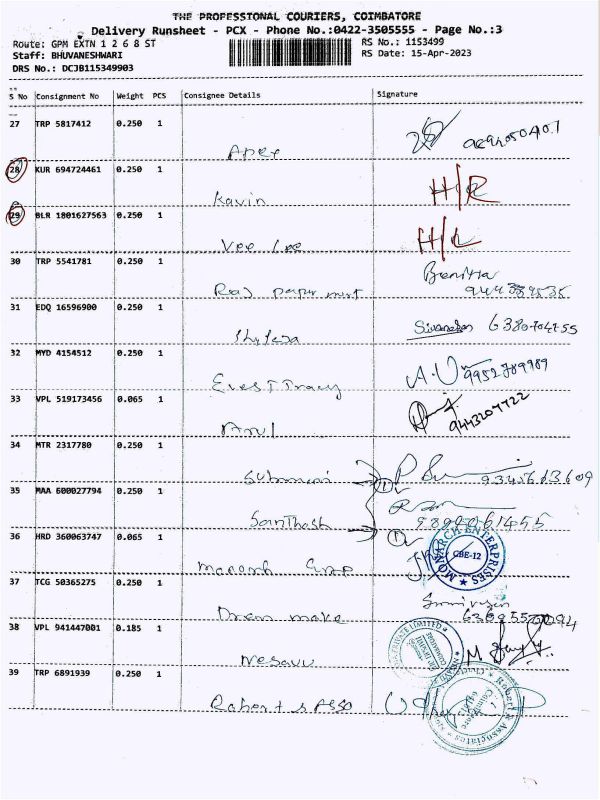 THE PROFESSIONAL COURIERS, COIMBATORE
Delivery Runsheet - PCX - Phone No.:0422-3505555 - Page No.:3
Route: GPM EXTN 1 2 6 8 ST RS No.: 1153499
Staff: BHUVANESHWARI RS Date: 15-Apr-2023
DRS No.: DCJB115349903
S No Consignment No Weight PCS Consignee Details Signature
27 TRP 5817412 0.250 1
Apex
28 KUR 694724461 0.250 1 H/R
Kavin
29 BLR 1801627563 0.250 1 H/L
Vee Lee
30 TRP 5541781 0.250 1
Raj paper mart
31 EDQ 16596900 0.250 1
32 MYD 4154512 0.250 1 9952789989
Everst Tracy
33 VPL 519173456 0.065 1 9443207722
Arul
34 MTR 2317780 0.250 1
35 MAA 600027794 0.250 1
Santhosh
36 HRD 360063747 0.065 1
MONARCH ENTERPRISES CBE-12
Monarch
37 TCG 50365275 0.250 1
Drem make
38 VPL 941447001 0.185 1
Nesavu
39 TRP 6891939 0.250 1
Robert & Asso